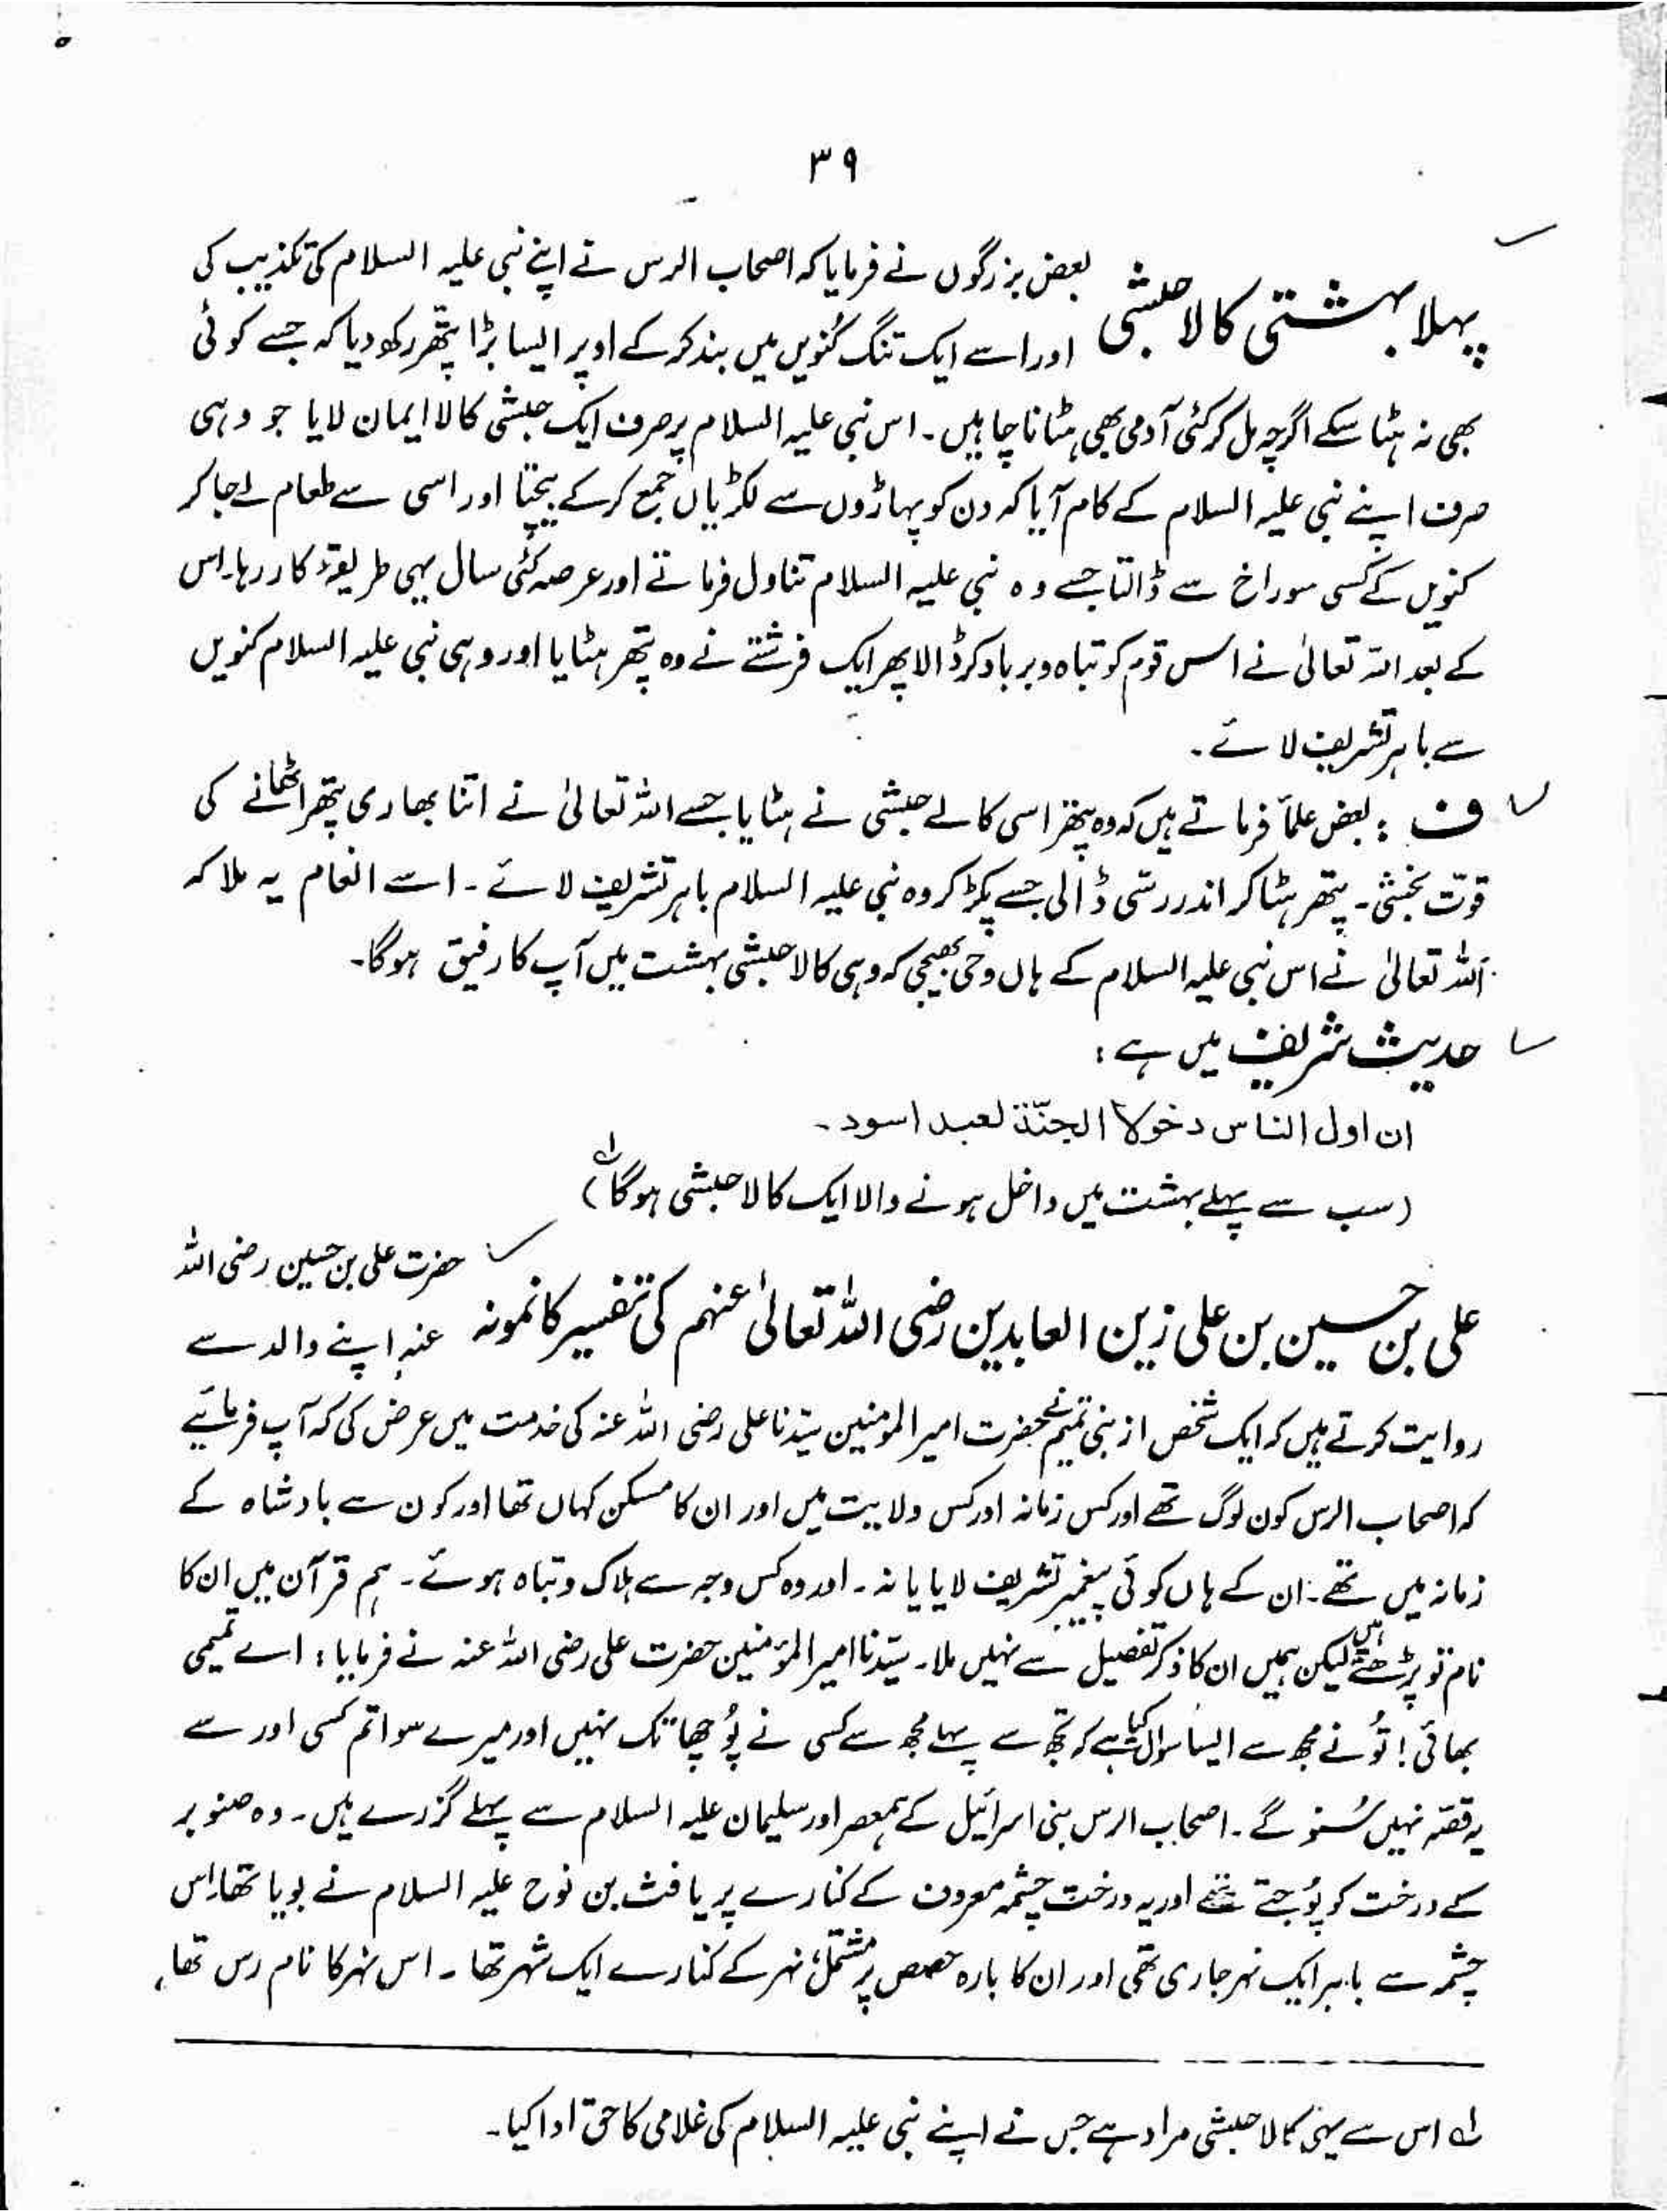 ۳۹
پہلا بہشتی کالا حبشی بعض بزرگوں نے فرمایا کہ اصحاب الرس نے اپنے نبی علیہ السلام کی تکذیب کی
اور اسے ایک تنگ کنویں میں بند کر کے اوپر ایسا بڑا پتھر رکھ دیا کہ جسے کوئی
بھی نہ ہٹا سکے اگرچہ مل کر کئی آدمی بھی ہٹانا چاہیں۔ اس نبی علیہ السلام پر صرف ایک حبشی کالا ایمان لایا جو وہی
صرف اپنے نبی علیہ السلام کے کام آیا کہ دن کو پہاڑوں سے لکڑیاں جمع کر کے بیچتا اور اسی سے طعام لے جا کر
کنویں کے کسی سوراخ سے ڈالتا جسے وہ نبی علیہ السلام تناول فرماتے اور عرصہ کئی سال یہی طریقۂ کار رہا۔ اس
کے بعد اللہ تعالیٰ نے اس قوم کو تباہ و برباد کر ڈالا پھر ایک فرشتے نے وہ پتھر ہٹایا اور وہی نبی علیہ السلام کنویں
سے باہر تشریف لائے۔
ف : بعض علماً فرماتے ہیں کہ وہ پتھر اسی کالے حبشی نے ہٹایا جسے اللہ تعالیٰ نے اتنا بھاری پتھر اٹھانے کی
قوّت بخشی۔ پتھر ہٹا کر اندر رسّی ڈالی جسے پکڑ کر وہ نبی علیہ السلام باہر تشریف لائے۔ اسے انعام یہ ملا کہ
اللہ تعالیٰ نے اس نبی علیہ السلام کے ہاں وحی بھیجی کہ وہی کالا حبشی بہشت میں آپ کا رفیق ہوگا۔
حدیث شریف میں ہے :
ان اول الناس دخولا الجنّة لعبد اسود۔
(سب سے پہلے بہشت میں داخل ہونے والا ایک کالا حبشی ہوگا)لہ
علی بن حسین بن علی زین العابدین رضی اللہ تعالیٰ عنہم کی تفسیر کا نمونہ حضرت علی بن حسین رضی اللہ
عنہ اپنے والد سے
روایت کرتے ہیں کہ ایک شخص از بنی تمیم نے حضرت امیر المومنین سیّدنا علی رضی اللہ عنہ کی خدمت میں عرض کی کہ آپ فرمائیے
کہ اصحاب الرس کون لوگ تھے اور کس زمانہ اور کس ولایت میں اور ان کا مسکن کہاں تھا اور کون سے بادشاہ کے
زمانہ میں تھے۔ ان کے ہاں کوئی پیغمبر تشریف لایا یا نہ۔ اور وہ کس وجہ سے ہلاک و تباہ ہوئے۔ ہم قرآن میں ان کا
نام تو پڑھتے ہیں لیکن ہمیں ان کا ذکر تفصیل سے نہیں ملا۔ سیّدنا امیر المؤمنین حضرت علی رضی اللہ عنہ نے فرمایا : اے تمیمی
بھائی! تُو نے مجھ سے ایسا سوال کیا ہے کہ تجھ سے پہلے مجھ سے کسی نے پُوچھا تک نہیں اور میرے سوا تم کسی اور سے
یہ قصّہ نہیں سُنو گے۔ اصحاب الرس بنی اسرائیل کے ہمعصر اور سلیمان علیہ السلام سے پہلے گزرے ہیں۔ وہ صنوبر
کے درخت کو پُوجتے تھے اور یہ درخت چشمہ معروف کے کنارے پر یافث بن نوح علیہ السلام نے بویا تھا۔ اس
چشمہ سے باہر ایک نہر جاری تھی اور ان کا بارہ حصص پر مشتمل نہر کے کنارے ایک شہر تھا۔ اس نہر کا نام رس تھا،
لہ اس سے یہی کالا حبشی مراد ہے جس نے اپنے نبی علیہ السلام کی غلامی کا حق ادا کیا۔